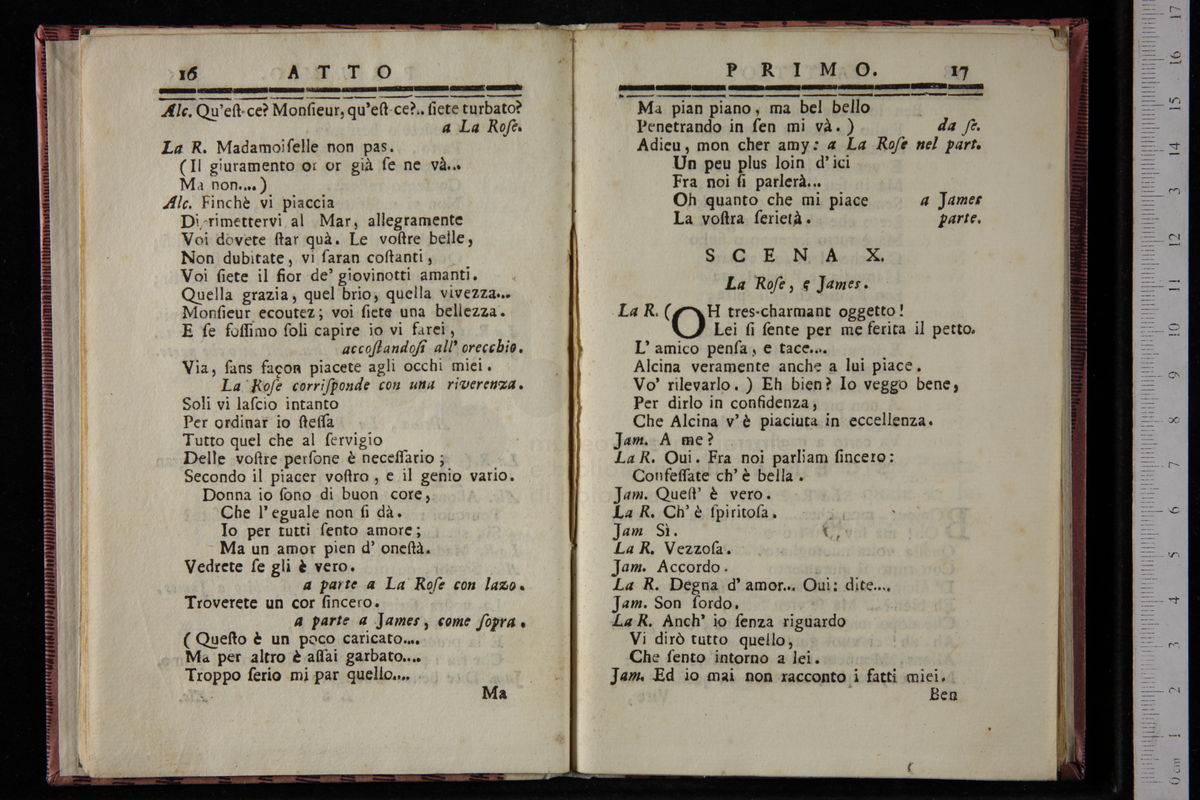 16 ATTO
Alc. Qu'eſt-ce? Monſieur, qu'eſt-ce?.. ſiete turbato?
a La Roſe.
La R. Madamoiſelle non pas.
(Il giuramento or or già ſe ne và...
Ma non....)
Alc. Finchè vi piaccia
Di rimettervi al Mar, allegramente
Voi dovete ſtar quà. Le voſtre belle,
Non dubitate, vi ſaran coſtanti,
Voi ſiete il fior de' giovinotti amanti.
Quella grazia, quel brio, quella vivezza...
Monſieur ecoutez; voi ſiete una bellezza.
E ſe foſſimo ſoli capire io vi farei,
accoſtandoſi all' orecchio.
Via, ſans façon piacete agli occhi miei.
La Roſe corriſponde con una riverenza.
Soli vi laſcio intanto
Per ordinar io ſteſſa
Tutto quel che al ſervigio
Delle voſtre perſone è neceſſario;
Secondo il piacer voſtro, e il genio vario.
Donna io ſono di buon core,
Che l'eguale non ſi dà.
Io per tutti ſento amore;
Ma un amor pien d'oneſtà.
Vedrete ſe gli è vero.
a parte a La Roſe con lazo.
Troverete un cor ſincero.
a parte a James, come ſopra.
(Queſto è un poco caricato....
Ma per altro è aſſai garbato....
Troppo ſerio mi par quello....
Ma
PRIMO. 17
Ma pian piano, ma bel bello
Penetrando in ſen mi và.) da ſe.
Adieu, mon cher amy: a La Roſe nel part.
Un peu plus loin d'ici
Fra noi ſi parlerà...
Oh quanto che mi piace a James
La voſtra ſerietà. parte.
SCENA X.
La Roſe, e James.
La R. (OH tres-charmant oggetto!
Lei ſi ſente per me ferita il petto.
L'amico penſa, e tace....
Alcina veramente anche a lui piace.
Vo' rilevarlo.) Eh bien? Io veggo bene,
Per dirlo in confidenza,
Che Alcina v'è piaciuta in eccellenza.
Jam. A me?
La R. Oui. Fra noi parliam ſincero:
Confeſſate ch'è bella.
Jam. Queſt' è vero.
La R. Ch'è ſpiritoſa.
Jam Sì.
La R. Vezzoſa.
Jam. Accordo.
La R. Degna d'amor... Oui: dite....
Jam. Son ſordo.
La R. Anch' io ſenza riguardo
Vi dirò tutto quello,
Che ſento intorno a lei.
Jam. Ed io mai non racconto i fatti miei.
Ben